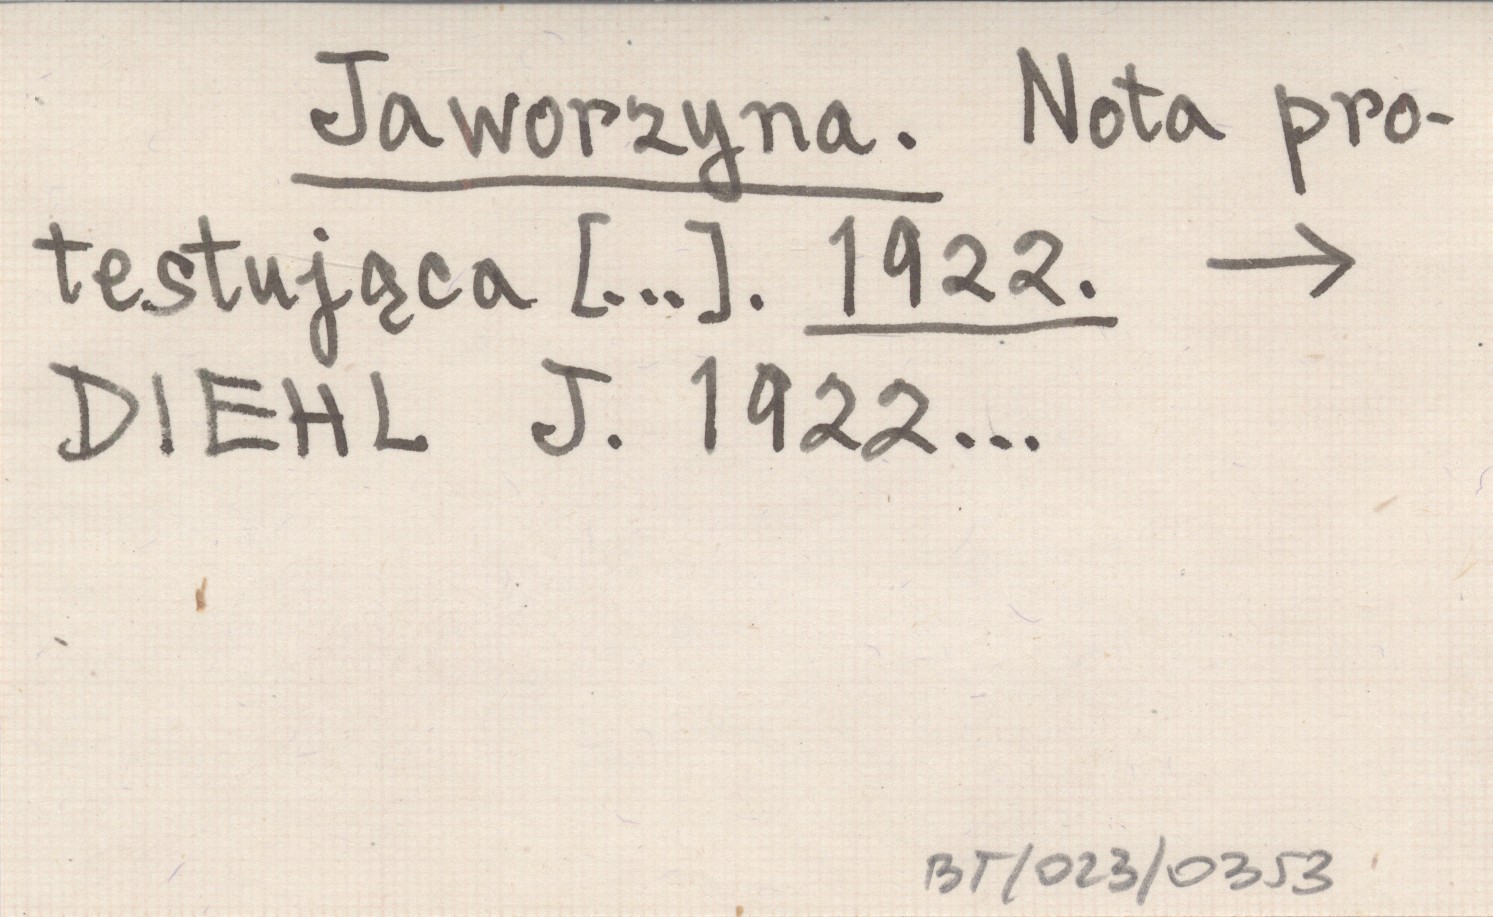 Jaworzyna. Nota pro-
testująca [...]. 1922. →
DIEHL J. 1922...
BT/023/0353